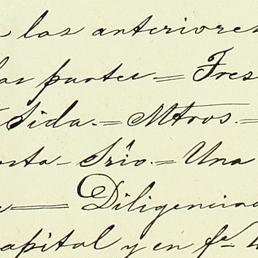 los anteriores
partes = Tres
Sida. = Mtros. =
Srio. = Una
= Diligencia
capital y en f.